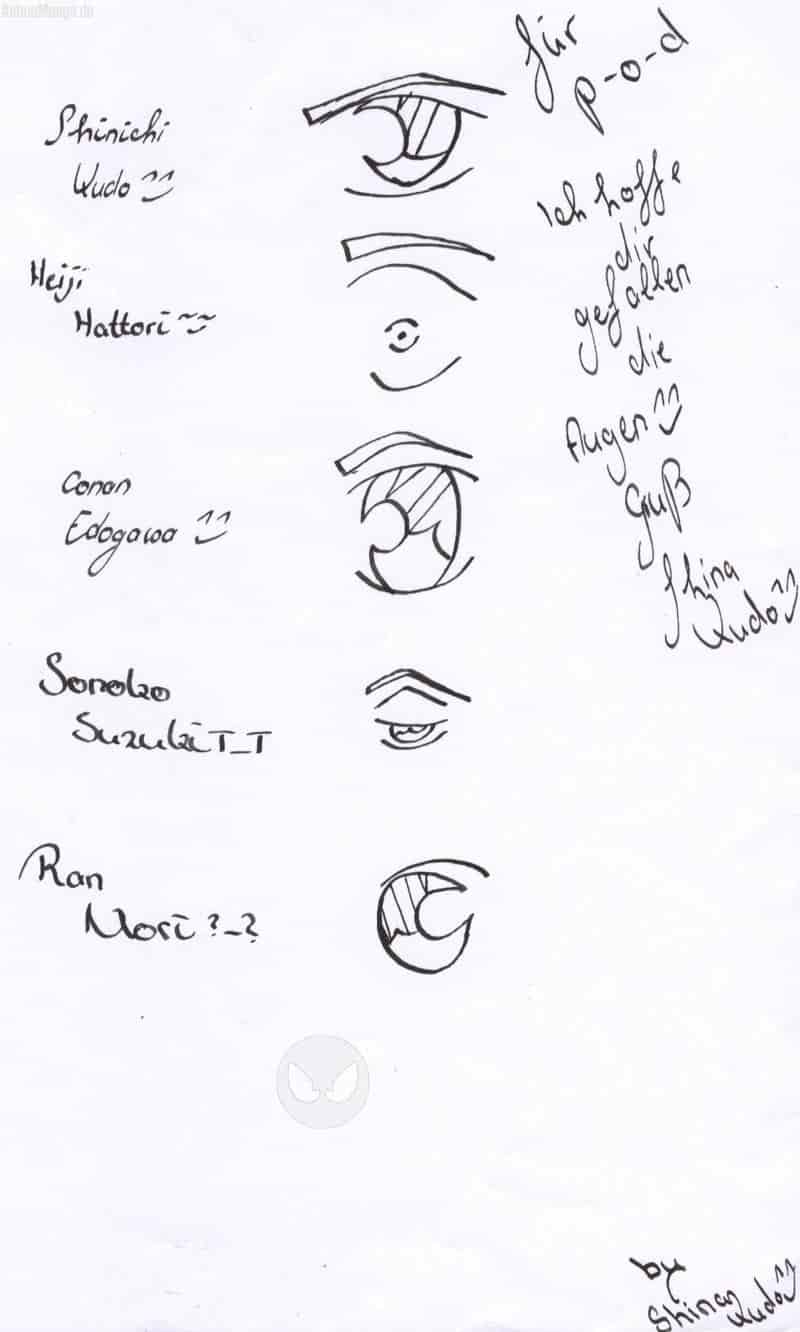 für
p-o-d
Shinichi
Kudo ^^
Ich hoffe
dir
gefallen
die
Augen ^^
Gruß
Shina
Kudo ^^
Heiji
Hattori ~~
Conan
Edogawa ^^
Sonoko
Suzuki T_T
Ran
Mori ?_?
by
Shinan
Kudo ^^